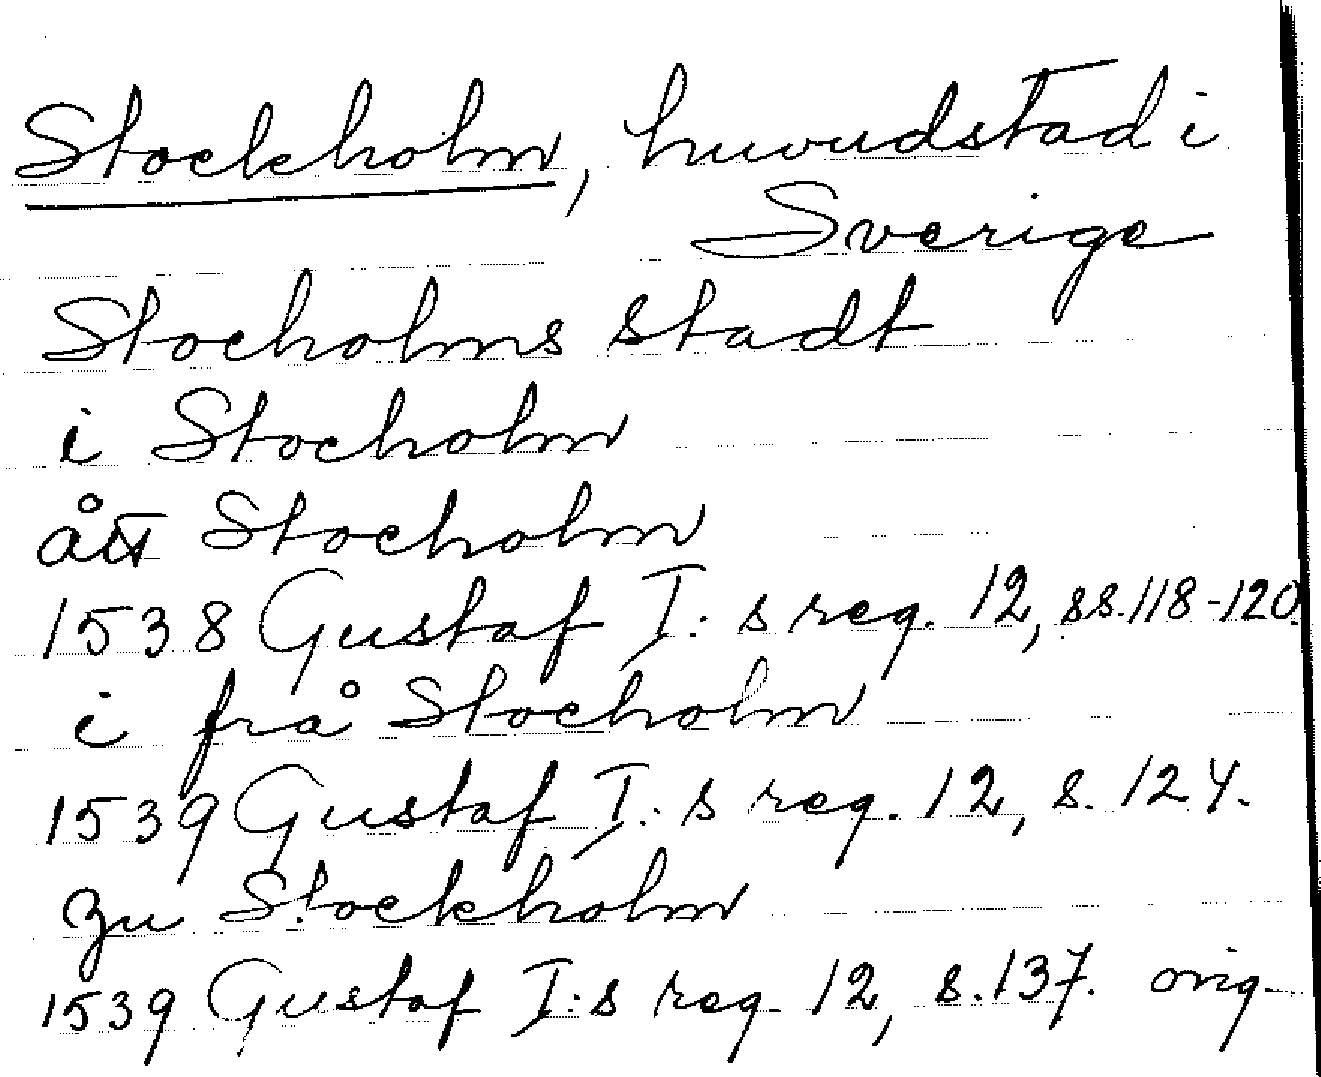 Stockholm, huvudstad i
Sverige
Stocholms stadt
i Stocholm
ått Stocholm
1538 Gustaf I:s reg. 12, ss. 118-120.
i frå Stocholm
1539 Gustaf I:s reg. 12, s. 124.
zu Stockholm
1539 Gustaf I:s reg. 12, s. 137. orig.